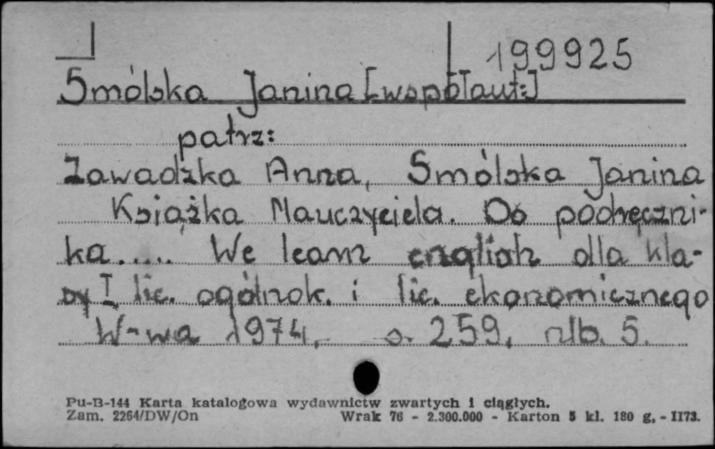 199925
Smólska Janina [współaut:]
patrz:
Zawadzka Anna, Smólska Janina
Książka Nauczyciela. Do podręczni-
ka..... We learn english dla kla-
sy I lic. ogólnok. i lic. ekonomicznego
W-wa 1974, s. 259, nlb. 5.
Pu-B-144 Karta katalogowa wydawnictw zwartych i ciągłych.
Zam. 2264/DW/On Wrak 76 - 2.300.000 - Karton 5 kl. 180 g. - II73.